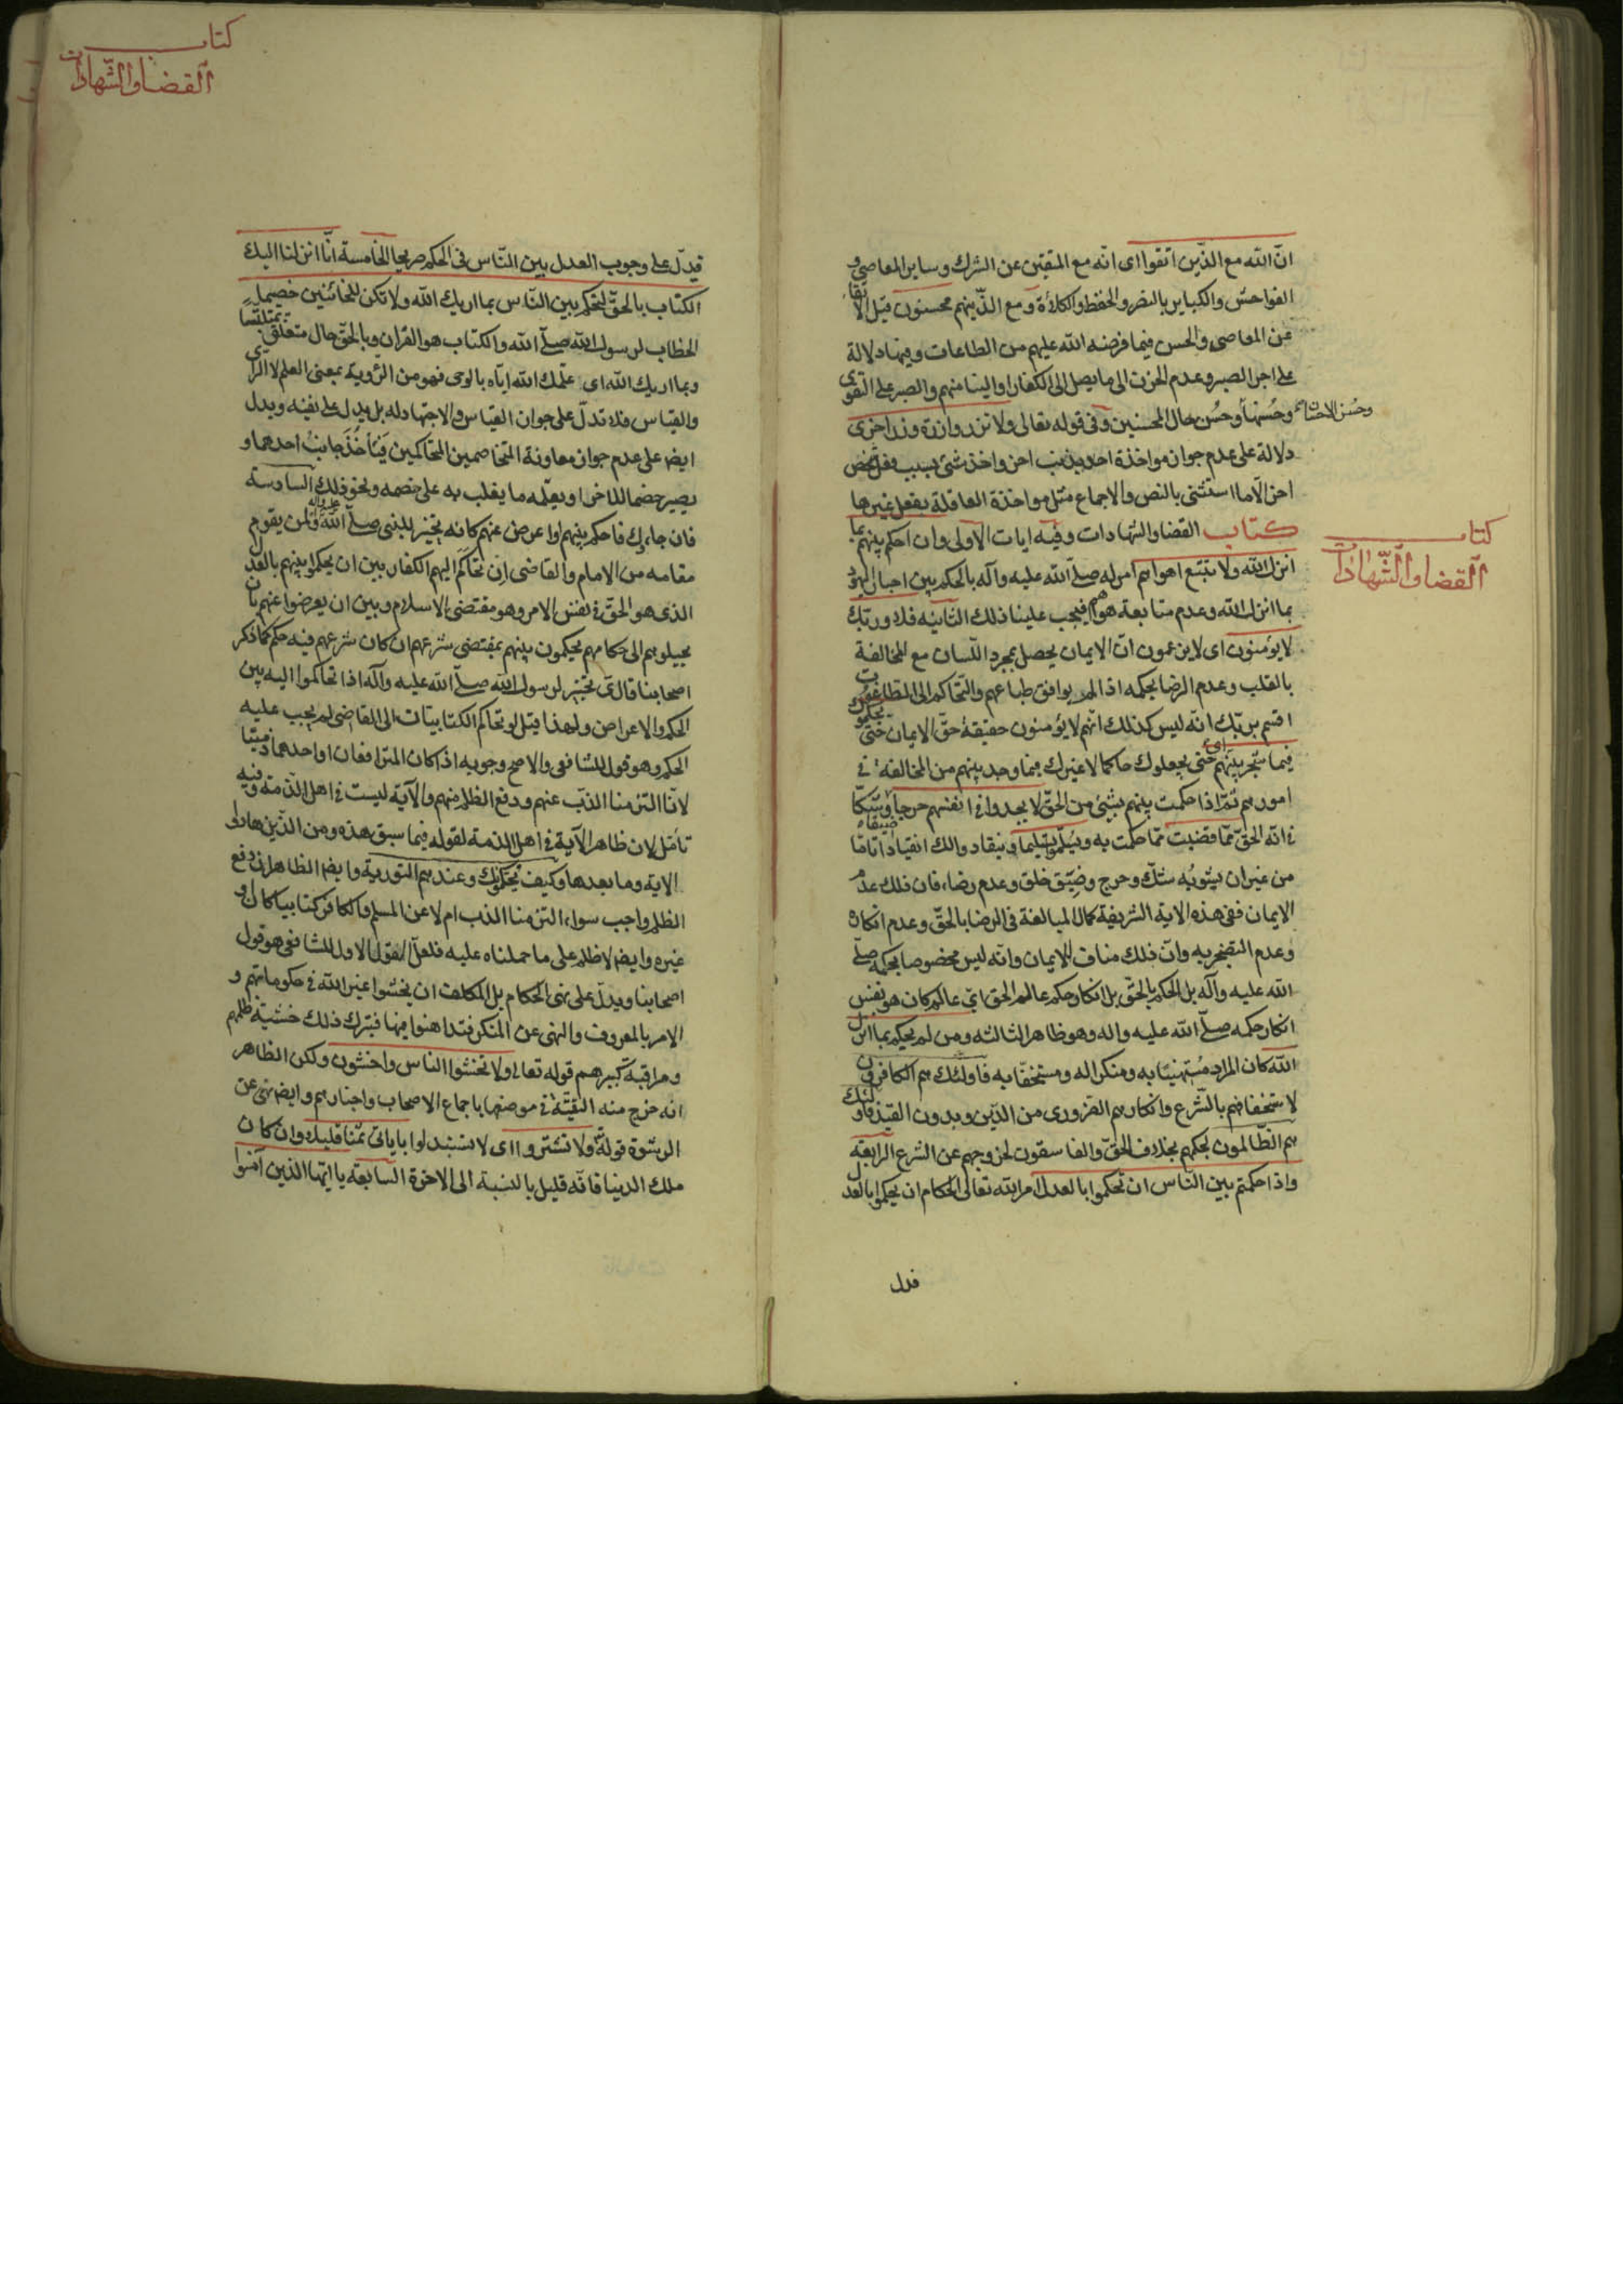 انّ الله مع الذّين اتقوا اى انّه مع المتقين عن الشرك و ساير المعاصى و
الفواحش والكباير بالنصر والحفظ والكلاءة و مع الذّينهم محسنون قيل الاتقاء
عن المعاصى والحسن فيما فرضه الله عليهم من الطاعات و فيها دلالة
على اجر الصبر و عدم الحزن الى ما يصل الى الكفار او الينا منهم والصبر على التقوى
وحُسنها و حُسن حال المحسنين و فى قوله تعالى ولا تزر وازرة وزر اخرى
وحُسن الاحسان
دلالة على عدم جواز مواخذة احد بذنب اخر واخذ شئ بسبب فعل شخص
اخر الّا ما استثنى بالنص والاجماع مثل مواخذة العاقلة بفعل غيرها
كتاب القضا والشهادات و فيه ايات الاولى وان احكم بينهم بما
كتاب
القضا والشّهادات
انزل الله ولا تتبع اهواءهم امر له صلّى الله عليه وآله بالحكم بين احبار اليهود
بما انزل الله و عدم متابعة هواهم فيجب علينا ذلك الثانيه فلا وربّك
لا يؤمنون اى لا يزعمون انّ الايمان يحصل بمجرد اللّسان مع المخالفة
بالقلب و عدم الرضا بحكمه اذا لم يوافق طباعهم والتّحاكم الى الطاغوت
اقسم بربّك انّه ليس كذلك انّهم لا يؤمنون حقيقة حقّ الايمان حتّى يحكّموك
فيما شجر بينهم اى حتى يجعلوك حاكما لا غيرك فيما وجد بينهم من المخالفة فى
امورهم ثمّ اذا حكمت بينهم بشئ من الحقّ لا يجدوا فى انفسهم حرجا ضيقا و شكّا
فى انّه الحقّ ممّا قضيت ممّا حكمت به ويُسلّموا تسليما و ينقادوا لك انقيادا تامّا
من غير ان يشوبُه شكّ و حرج و ضِيّق خلق و عدم رضاء فان ذلك عدم
الايمان ففى هذه الاية الشريفة كمال المبالغة فى الرضا بالحقّ و عدم انكاره
و عدم التضجر به وانّ ذلك مناف للايمان وانّه ليس مخصوصا بحكمه صلّى
الله عليه وآله بل الحكم بالحقّ بل انكار حكم عالم الحق اىّ عالم كان هو بنفس
انكار حكمه صلّى الله عليه واله وهو ظاهر الثالثه ومن لم يحكم بما انزل
الله كان المراد مُستهينا به و منكرا له و مستخفّا به فاولئك هم الكافرون
لاستخفافهم بالشّرع وانكارهم الضرورى من الدّين و بدون القيد فاولئك
هم الظّالمون بحكمهم بخلاف الحقّ والفاسقون لخروجهم عن الشرع الرابعة
واذا حكمتم بين النّاس ان تحكموا بالعدل امر الله تعالى الحكام ان يحكموا بالعدل
فدل
كتاب
القضا والشّهادات
فدلّ على وجوب العدل بين النّاس فى الحكم صريحا الخامسة انّا انزلنا اليك
الكتاب بالحقّ لتحكم بين النّاس بما اريك الله ولا تكن للخائنين خصيما
الخطاب لرسول الله صلّى الله والكتاب هو القران و بالحقّ حال متعلق
وبما اريك الله اى علّمك الله ايّاه بالوحى فهو من الرّؤية بمعنى العلم لا الراى
والقياس فلا تدلّ على جواز القياس والاجتهاد له بل يدل على نفيه ويدل
ايضا على عدم جواز معاونة المتخاصمين المتحاكمين فيأخُذَ جانبُ احدهما و
يصير خصما للاخر او يعلّمه ما يغلب به على خصمه و نحو ذلك السادسة
فان جاءوك فاحكم بينهم او اعرض عنهم كانه تخيير للنبى صلّى الله عليه وآله ولمن يقوم
مقامه من الامام والقاضى ان تحاكَم اليهم الكفار بين ان يحكموا بينهم بالعدل
الذى هو الحقّ فى نفس الامر وهو مقتضى الاسلام و بين ان يعرضوا عنهم بان
يحيلوهم الى حكامهم يحكمون بينهم بمقتضى شرعهم ان كان شرعهم فيه حكم كما ذكر
اصحابنا قال تخيير لرسول الله صلّى الله عليه وآله اذا تحاكموا اليه بين
الحكم والاعراض ولهذا قيل لو تحاكم الكتابيّات الى القاضى لم يجب عليه
الحكم وهو قول للشافعى والاصح وجوبه اذا كان المترافعان او احدهما ذميّا
لانّا التزمنا الذبّ عنهم و دفع الظلم منهم والآية ليست فى اهل الذمة وفيه
تأمّل لان ظاهر الآية فى اهل الذمة لقوله فيما سبق هذه ومن الذّين هادوا
الاية وما بعدها وكيف يُحكّمونك وعندهم التورية وايضا الظاهر ان دفع
الظلم واجب سواء التزمنا الذب ام لا عن المسلم والكافر كتابيا كان او
غيره وايضا لا ظلم على ما حملناه عليه فلعلّ القول الاول للشافعى هو قول
اصحابنا ويدلّ على نهى الحكام بل المكلف ان يخشوا غير الله فى حكوماتهم و
الامر بالمعروف والنهى عن المنكر فتداهنوا فيها فيترك ذلك خشية ظلمهم
و مراقبة كبيرهم قوله تعالى ولا تخشوا الناس واخشون ولكن الظاهر
انه خرج منه التقيّة فى موضعها باجماع الاصحاب واخبارهم وايضا نهى عن
الرشوة قولهُ ولا تشتروا اى لا تستبدلوا باياتى ثمنا قليلا وان كان
ملك الدينا فانّه قليل بالنسبة الى الاخرة السابعة ياايّها الذين آمنوا